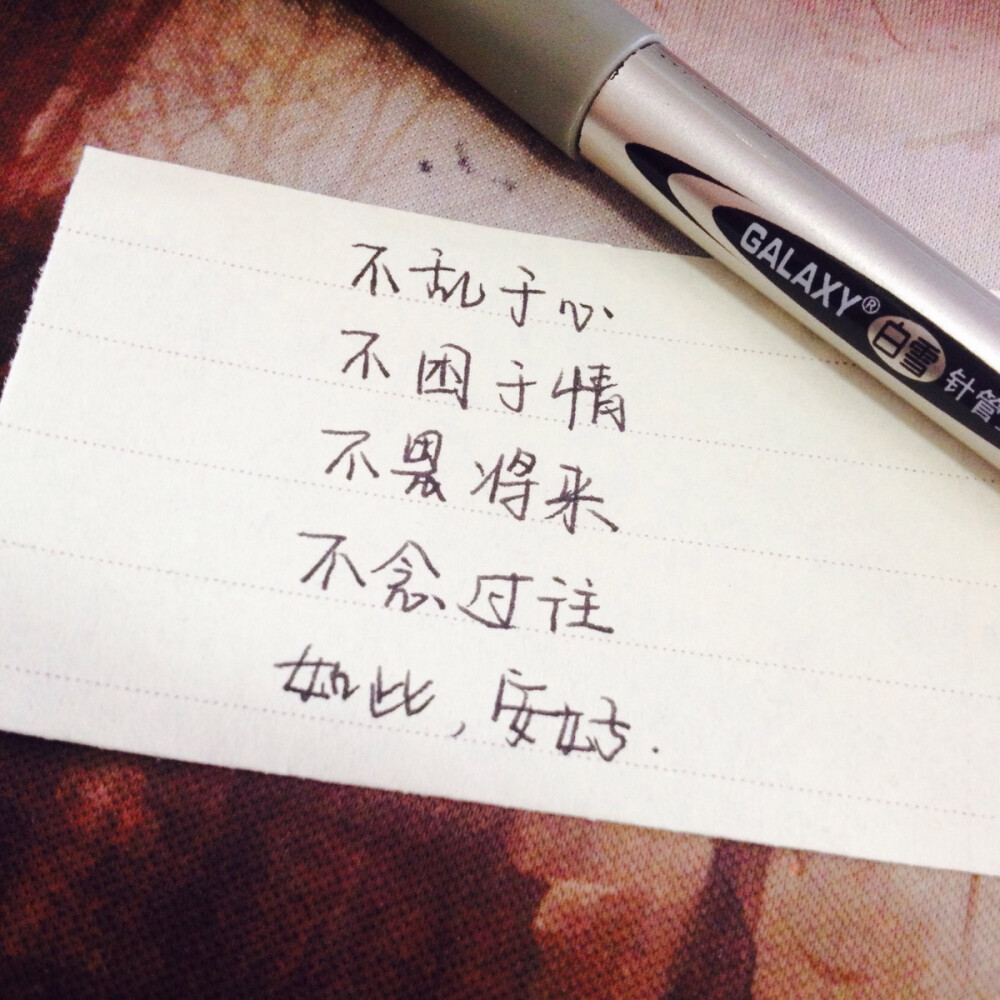 不乱于心
不困于情
不畏将来
不念过往
如此，安好.
GALAXY® 白雪 针管